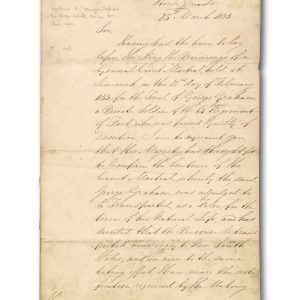 Horse Guards
25th March 1833
Sir
Having had the honor to lay
before The King the Proceedings of a
General Court Martial held at
on the 12th day of February
1833 for the Trial of George Graham
a Private Soldier of the 65 Regiment
of Foot who was found Guilty of
Desertion, I am to acquaint you
that His Majesty has thought fit
to Confirm the Sentence of the
Court Martial whereby the said
George Graham, was adjudged to
be Transported as a Felon for the
term of his Natural Life, and has
directed that the Prisoner be trans
ported accordingly to New South
Wales, and in order to the same
taking effect I am now the noti
fication required by the Mutiny